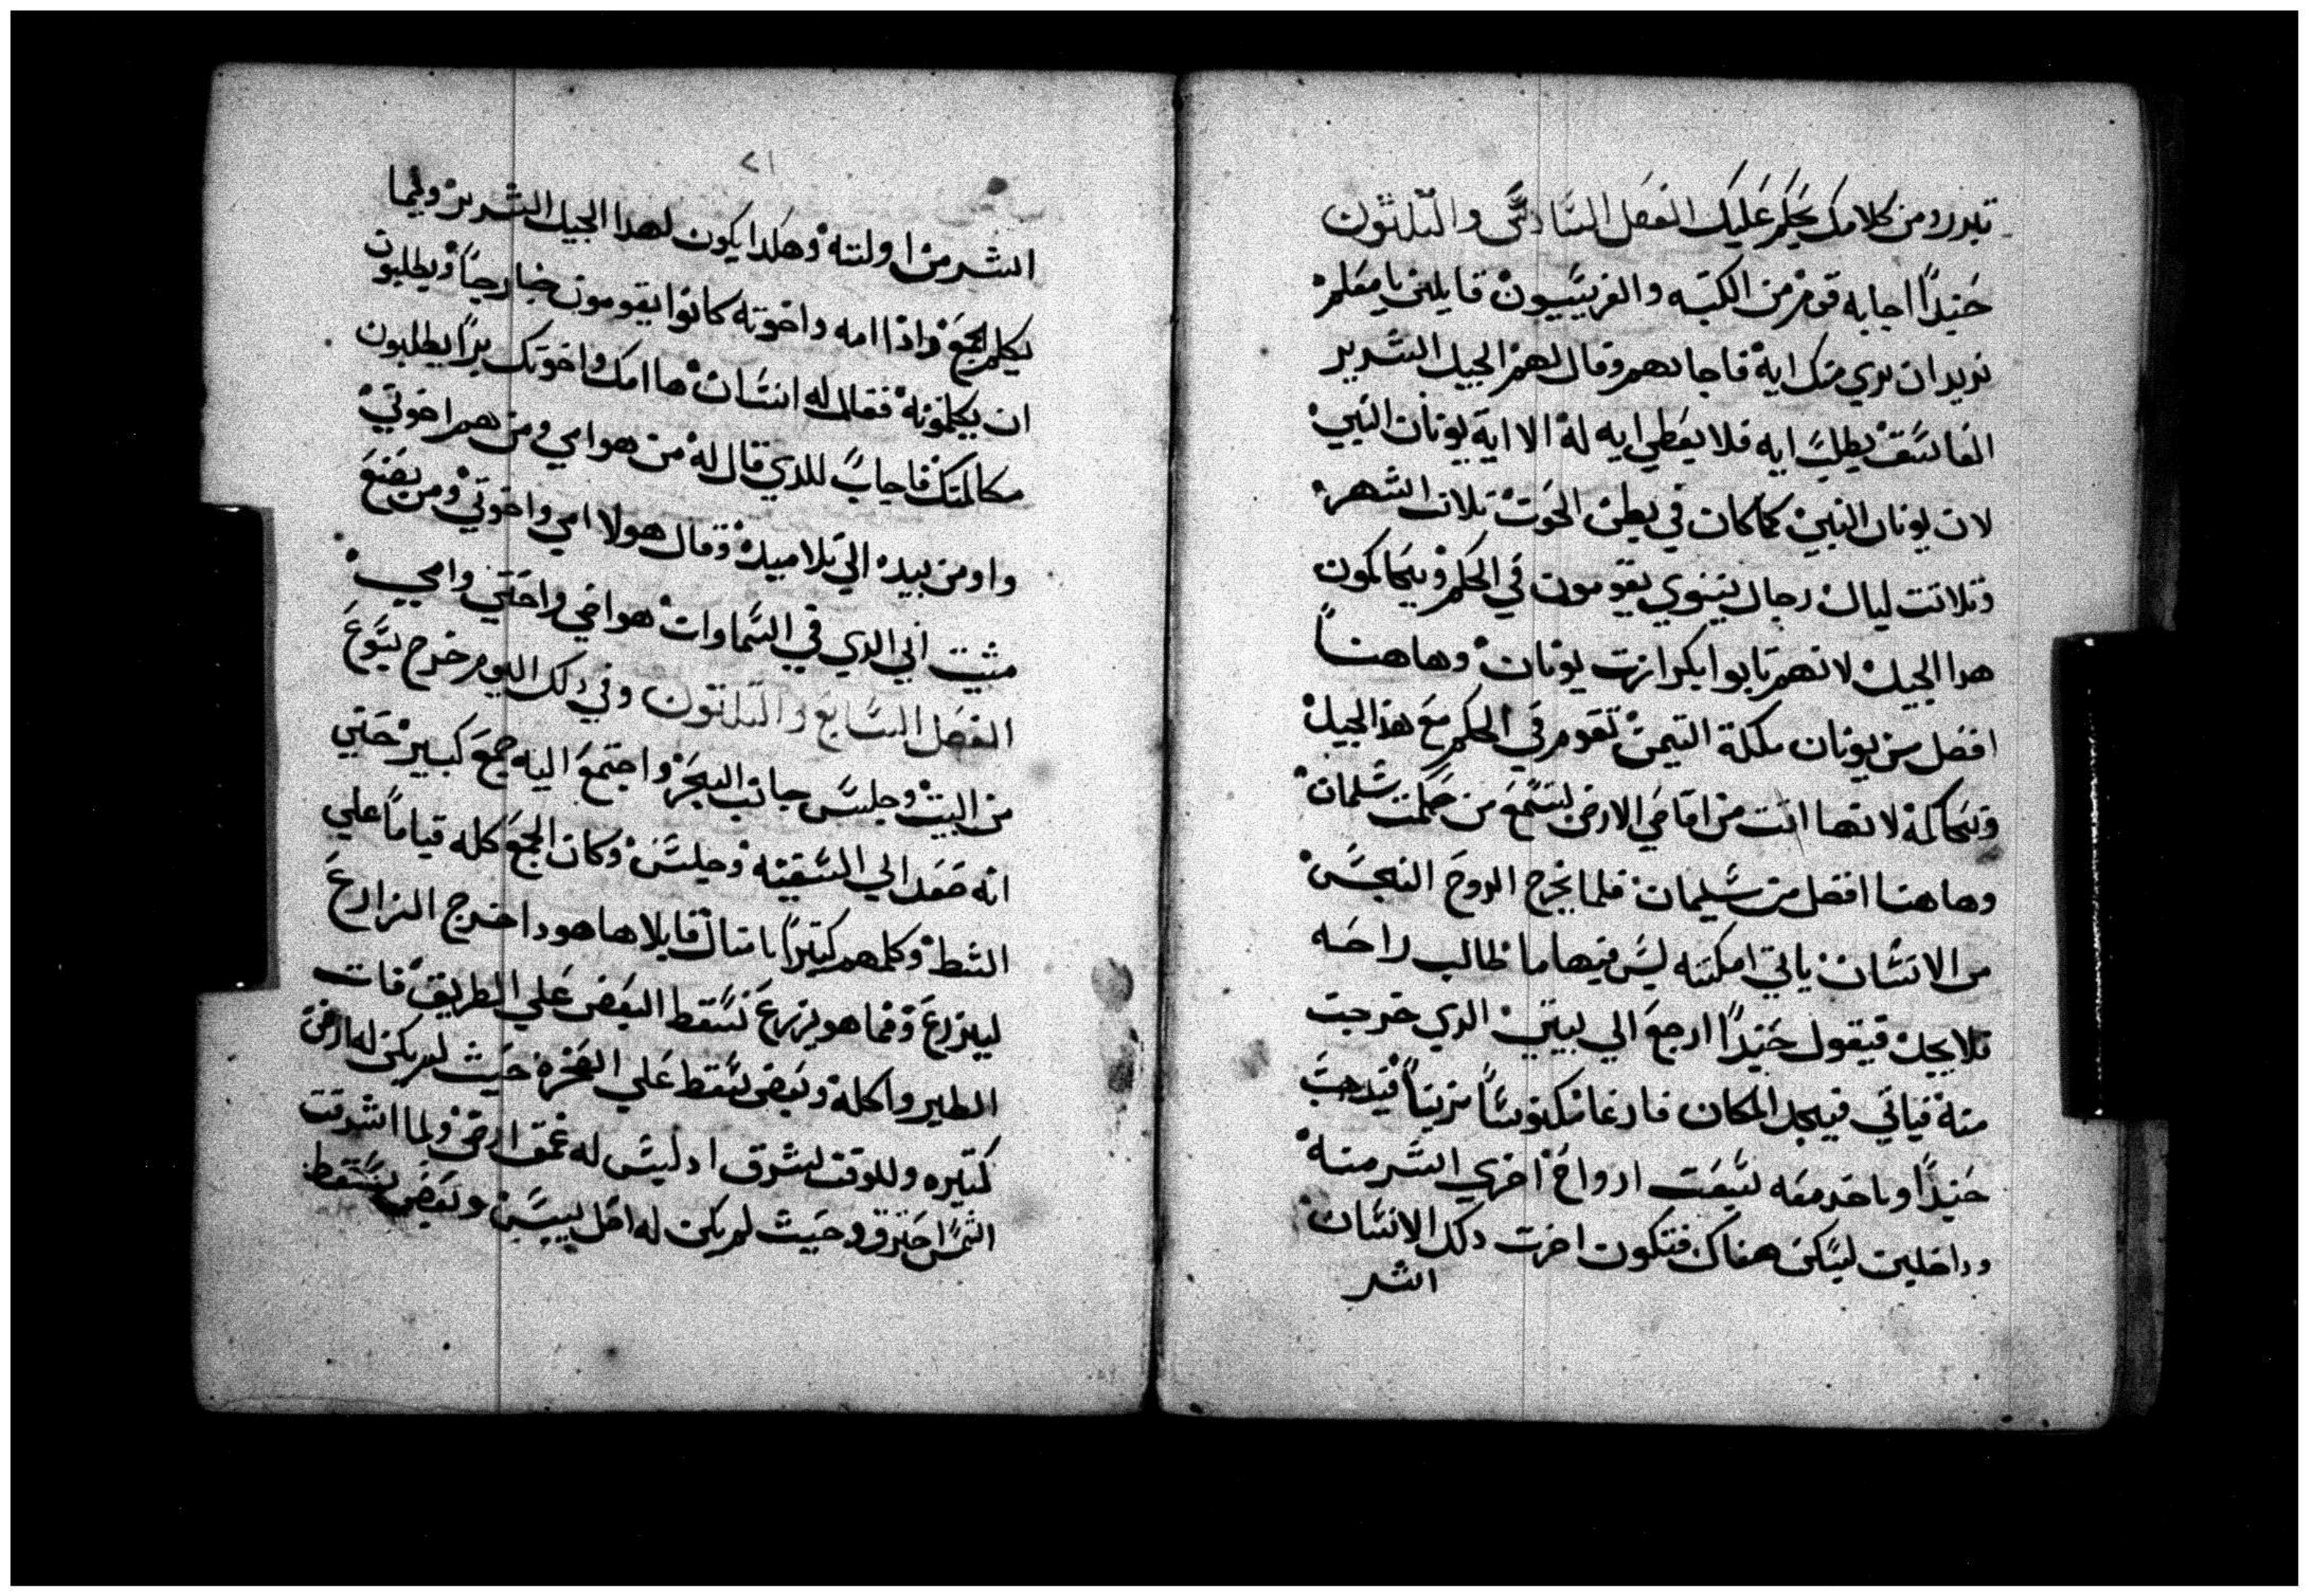 تبرر ومن كلامك يحكم عليك الفصل السادس والتلتون
حنيدًا اجابه قوم من الكتبه والفريسيون قايلين يا معلم
نريد ان نري منك ايه فاجابهم وقال لهم الجيل الشرير
الفاسق يطلب ايه فلا يعطي ايه له الا اية يونان النبي
لان يونان النبي كما كان في بطن الحوت تلات اشهر
وتلاتت ليال رجال نينوي يقومون في الحكم ويحاكمون
هدا الجيل لانهم تابوا بكرازت يونان وهاهنا
افضل من يونان ملكة التيمن تقوم في الحكم مع هذا الجيل
وتحاكمه لانها اتت من اقاصي الارض لتسمع من حكمت سلمان
وهاهنا افضل من سليمان فلما يخرج الروح النجس
من الانسان ياتي امكنه ليس فيها ما طالب راحه
فلا يجد فيقول حنيدًا ارجع الي بيتي الدي خرجت
منه فياتي فيجد المكان فارغا مكنوسًا مزينًا فيدهب
حنيدًا وياخد معه سبعت ارواح اخري اشر منه
وداخلين ليسكن هناك فتكون اخرت دلك الانسان
اشر
٢١
اشر من اولته وهكدا يكون لهدا الجيل الشرير وفيما
يكلم الجمع واذا امه واخوته كانوا يقومون خارجًا ويطلبون
ان يكلمونه فقال له انسان ها امك واخوتك برًا يطلبون
مكالمتك فاجاب للدي قال له من هو امي ومن هم اخوتي
واومن بيده الي تلاميده وقال هولا امي واخوتي ومن يصنع
مشيت ابي الدي في السماوات هو اخي واختي وامي
الفصل السابع والتلتون وفي دلك اليوم خرج يسوع
من البيت وجلس جانب البحر واجتمع اليه جمع كبير حتي
انه صعد الي السفينه وجلس وكان الجمع كله قيامًا علي
الشط وكلمهم كتيرًا بامتال قايلا ها هودا خرج الزارع
ليزرع وفيما هو يزرع سقط البعض علي الطريق فات
الطير واكله وبعض سقط علي الصخره حيث لم يكن له ارض
كتيره وللوقت شرق اد ليس له عمق ارض ولما اشرقت
الشمس احترق وحيث لم يكن له اصل يبس وبعض سقط